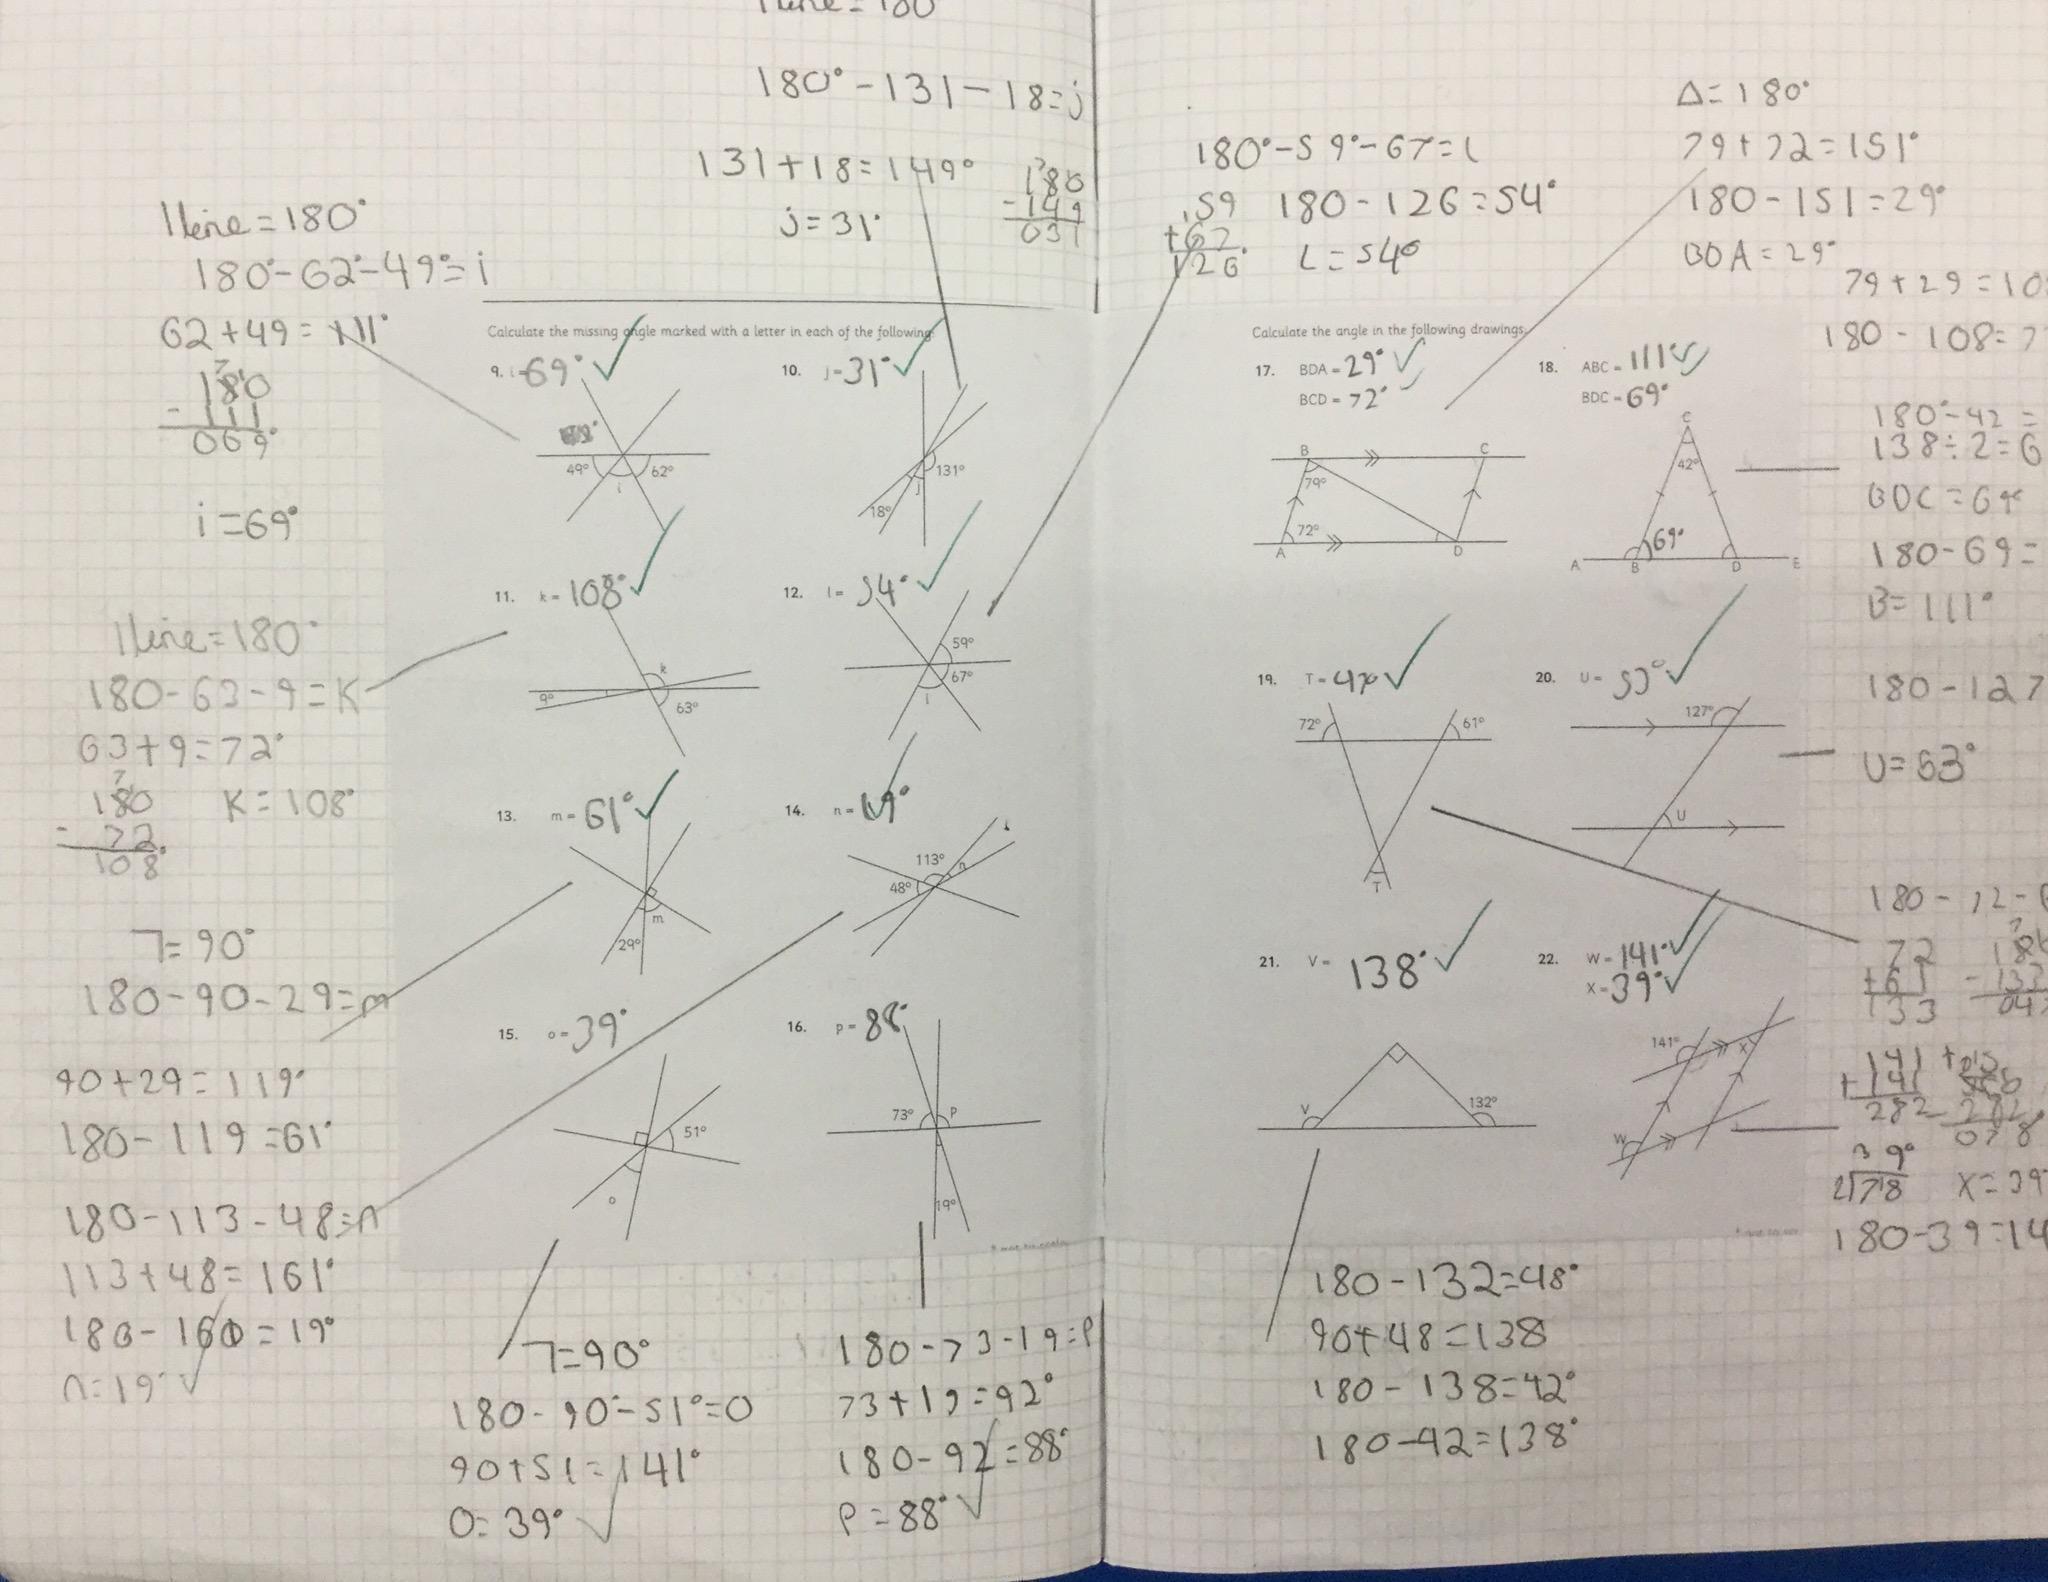 1 line = 180
180° - 131 - 18 = j
131 + 18 = 149°
180
- 149
031
j = 31°
1 line = 180°
180° - 62° - 49° = i
62 + 49 = 111°
180
- 111
069°
i = 69°
1 line = 180°
180 - 63 - 9 = K
63 + 9 = 72°
180
- 72
108°
K = 108°
7 = 90°
180 - 90 - 29 = m
90 + 29 = 119°
180 - 119 = 61°
180 - 113 - 48 = n
113 + 48 = 161°
n = 19°
Calculate the missing angle marked with a letter in each of the following:
9. i = 69°
49° 62°
i
10. j = 31°
131°
j
18°
11. k = 108°
k
9°
63°
12. l = 54°
59°
67°
l
13. m = 61°
m
29°
14. n = 19°
113° n
48°
15. o = 39°
51°
o
16. p = 88°
73° P
19°
7 = 90°
180 - 90° - 51° = O
90 + 51 = 141°
O = 39°
180 - 73 - 19 = P
73 + 19 = 92°
180 - 92 = 88°
P = 88°
180° - 59° - 67 = L
59
+ 67
126°
180 - 126 = 54°
L = 54°
Δ = 180°
79 + 72 = 151°
180 - 151 = 29°
BDA = 29°
79 + 29 = 10
180 - 108 = 7
Calculate the angle in the following drawings:
17. BDA = 29°
BCD = 72°
B C
79°
72°
A D
18. ABC = 111°
BDC = 69°
C
42°
69°
A B D E
180° - 42 =
138 ÷ 2 = 6
BDC = 69°
180 - 69 =
B = 111°
19. T = 47°
72° 61°
T
20. U = 53°
127°
U
180 - 127
U = 53°
180 - 72 - 6
72
+ 61
133
21. V = 138°
V 132°
22. W = 141°
X = 39°
141° X
W
141
+ 141
282
078
39°
2 78
X = 39
180 - 39 = 14
180 - 132 = 48°
90 + 48 = 138
180 - 138 = 42°
180 - 42 = 138°